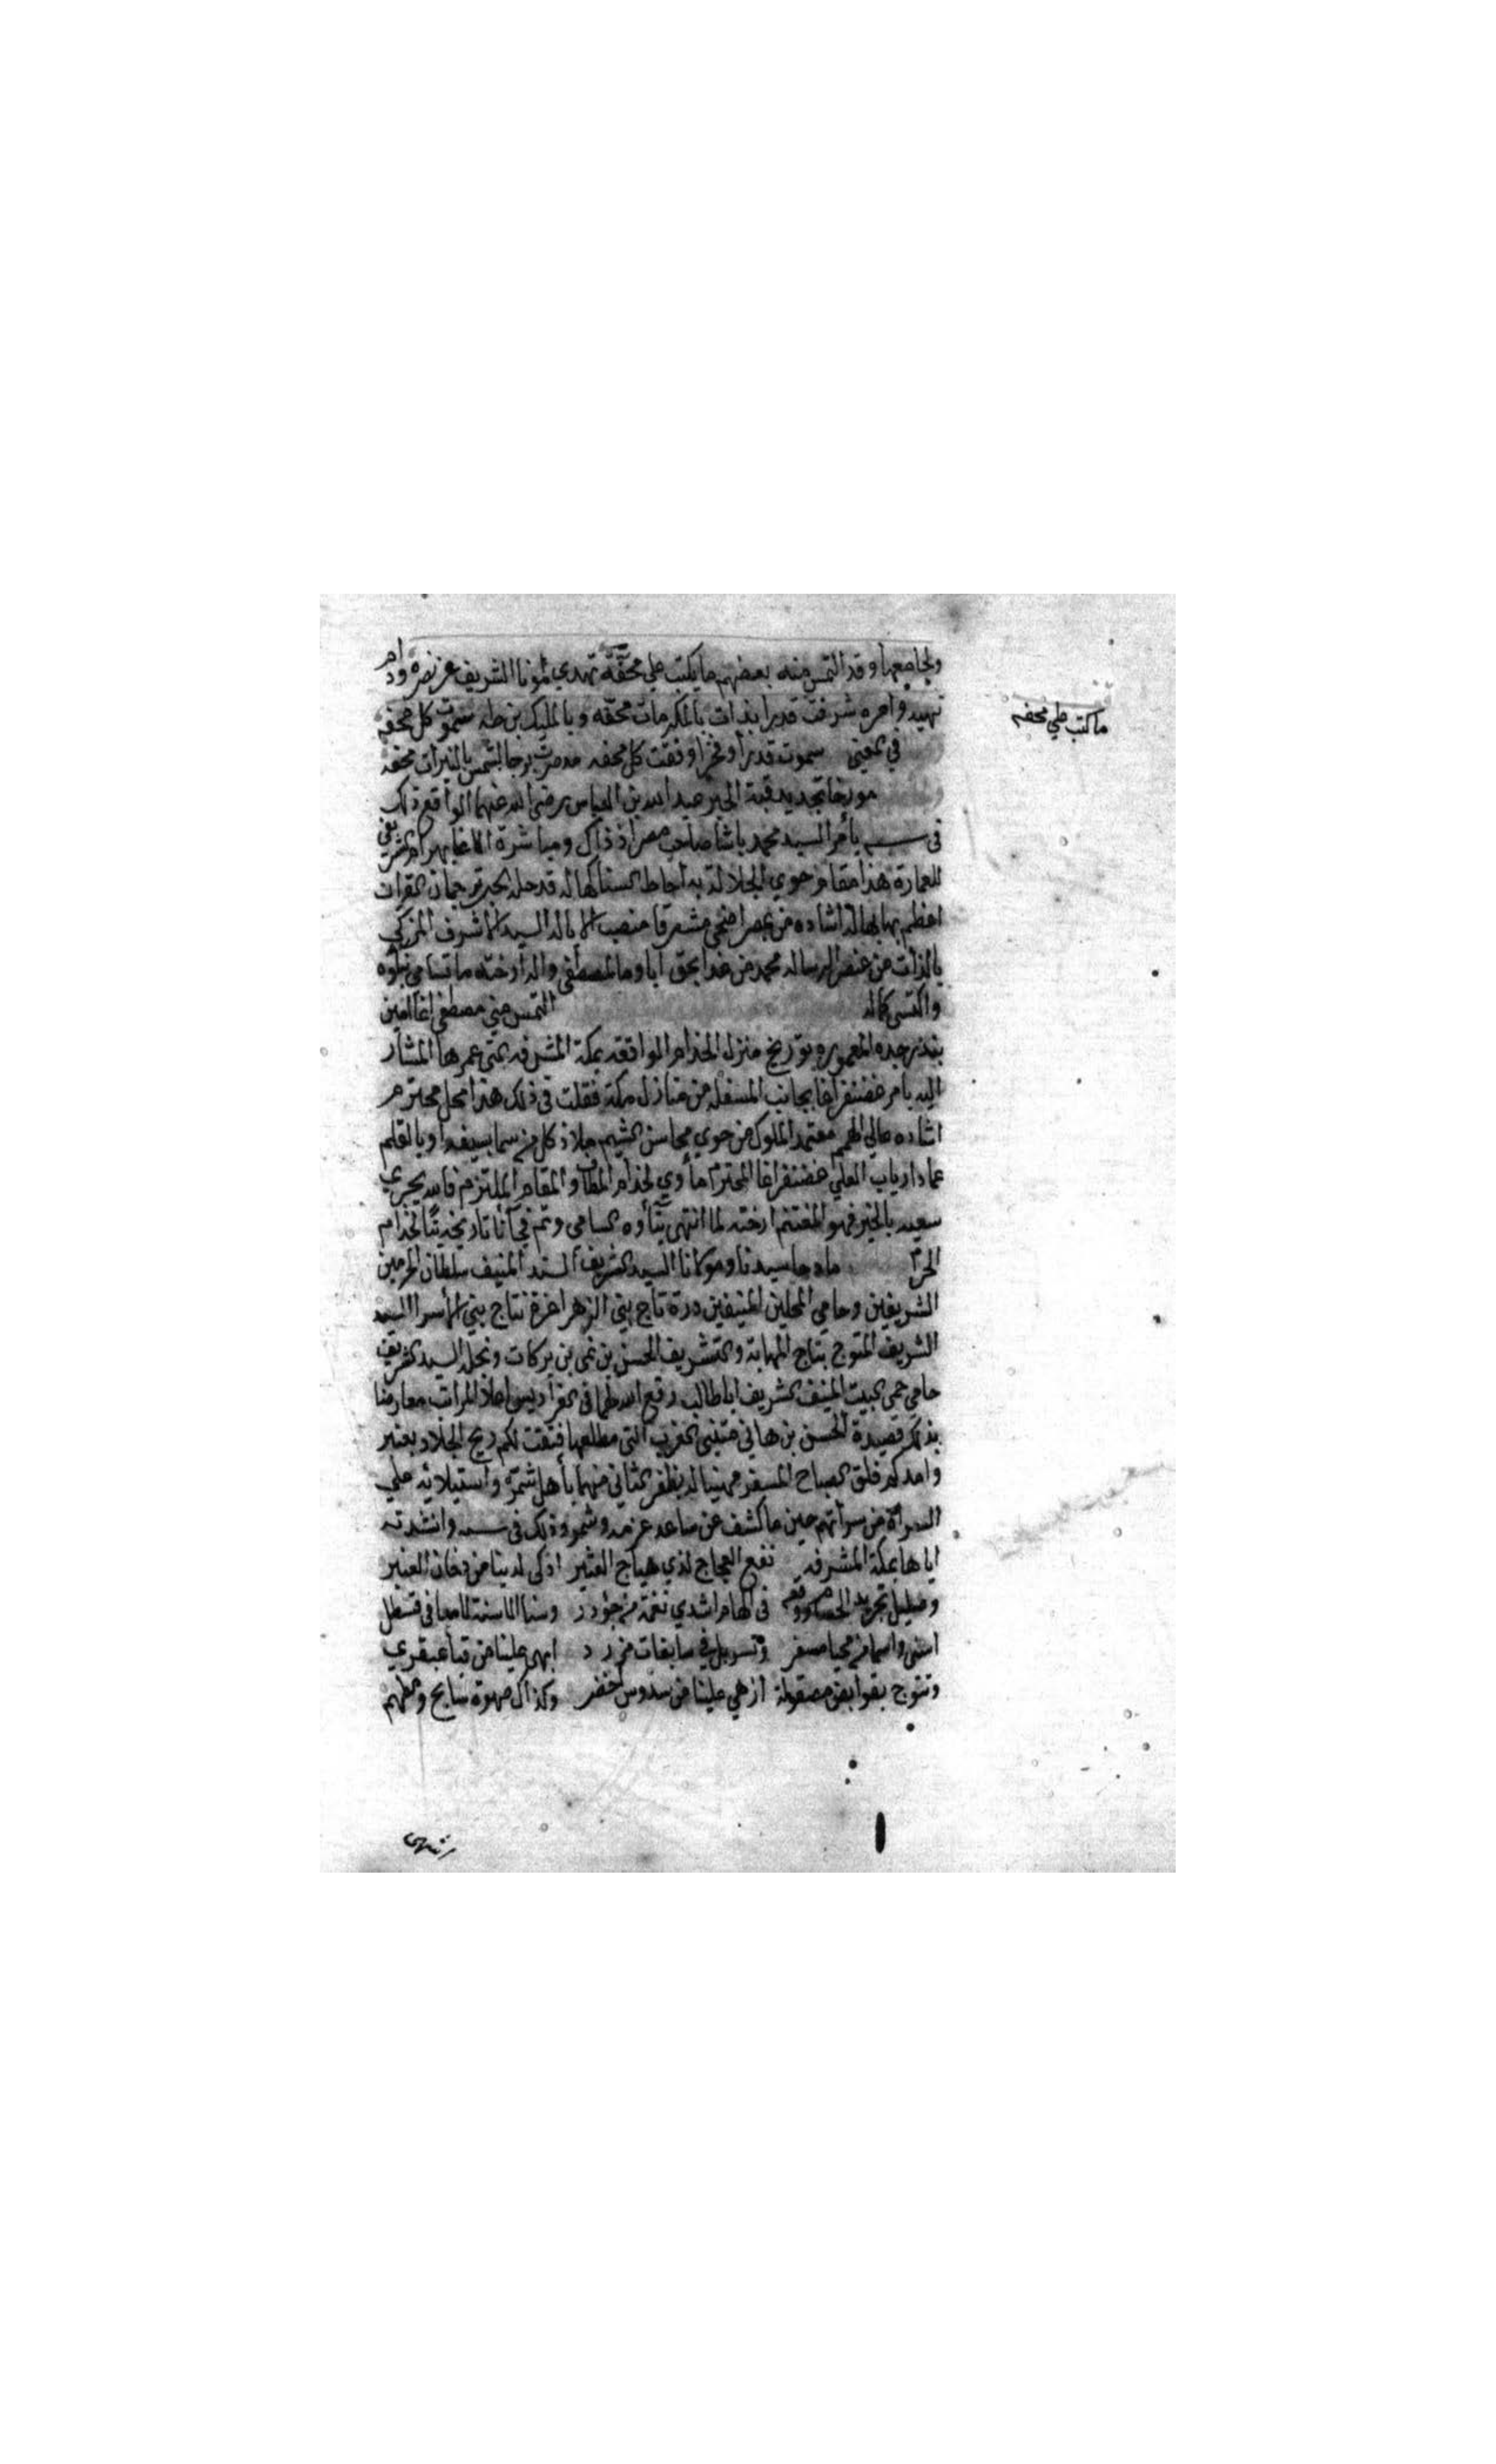 ولجامعها وقد التمس منه بعضهم ما يكتب علي محفّة تهدي لمونا الشريف عز نصره ودام
نهيه وامره شرفت قدرا بذات بالمكرمات محفّه وبالمليك بن طه سموت كل محفه
في المعني سموت قدرا وفخرا وفقت كل محفه مد صرت برجا لشمس بالنيرات محفه
مورخا تجديد قبة الحبر عبد الله بن العباس رضي الله عنهما الواقع ذلك
في سنه بأمر السيد محمد باشا صاحب مصر اذ ذاك ومباشرة الاغا بهرام الشريفي
للعمارة هذا مقام حوي الجلالة به احاط السنا كهاله قد حله الحبر ترجمان القران
اعظم بها ايالة اشاده من بمصر اضحى مشرقا منصب الايالة السيد الاشرف المزكي
بالذات من عنصر الرساله محمد من غدا بحق ابا وما لمصطفى واله ارخته ما تسامى بناؤه
واكتسى كماله التمس مني مصطفى اغا امين
بندر جده المعموره توريخ منزل الخدام الواقعه بمكة المشرفه التي عمرها المشار
اليه بامر غضنفر اغا بجانب المسفله من منازل مكة فقلت في ذلك هذا محل محترم
اشاده عالي الهمم معتمد الملوك من حوي محاسن الشيم ملاذ كل من سما بسيفه او بالقلم
عماد ارباب العلي غضنفر اغا المحترم مأوي لخدام المطاف والمقام الملتزم فالله يجري
سعيه بالخير فهو المغتنم ارخته لما انتهى بنأوه السامي وتم في آنا تاريخه بيتا لخدام
الحرم مادحا سيدنا ومولانا السيد الشريف السند المنيف سلطان الحرمين
الشريفين وحامي المحلين المنيفين درة تاج بني الزهرا غرة نتاج بني الأسرا السيد
الشريف المتوج بتاج المهابة والتشريف الحسن بن نمى بن بركات ونجله السيد الشريف
حامي حمى البيت المنيف الشريف ابا طالب رفع الله لهما في الفراديس اعلا المراتب معارضا
بذلك قصيدة الحسن بن هاني متنبي الغرب التي مطلعها فتقت لكم ريح الجلاد بعنبر
وامدكم فلق الصباح المسفر مهنيا له بظفر الثاني منهما بأهل شمر واستيلائه علي
السراة من سرأتهم حين ما كشف عن ساعد عزمه وشمر وذلك في سنه وانشدته
اياها بمكة المشرفه نقع العجاج لذي هياج العثير اذكى لدينا من دخان العنبر
وصليل تجريد الحسام ووقعه في الهام اشدي نغمة من جؤذر وسنا الاسنة لامعا في قسطل
اسنى واسما من محيا مسفر وتسربل في سابغات مزرد ابهى علينا من قبا عبقري
وتتوج بقوابض مصقولة ازهي علينا من سدوس اخضر وكذاك صهوة سابح ومطهم
ما كتب علي محفه